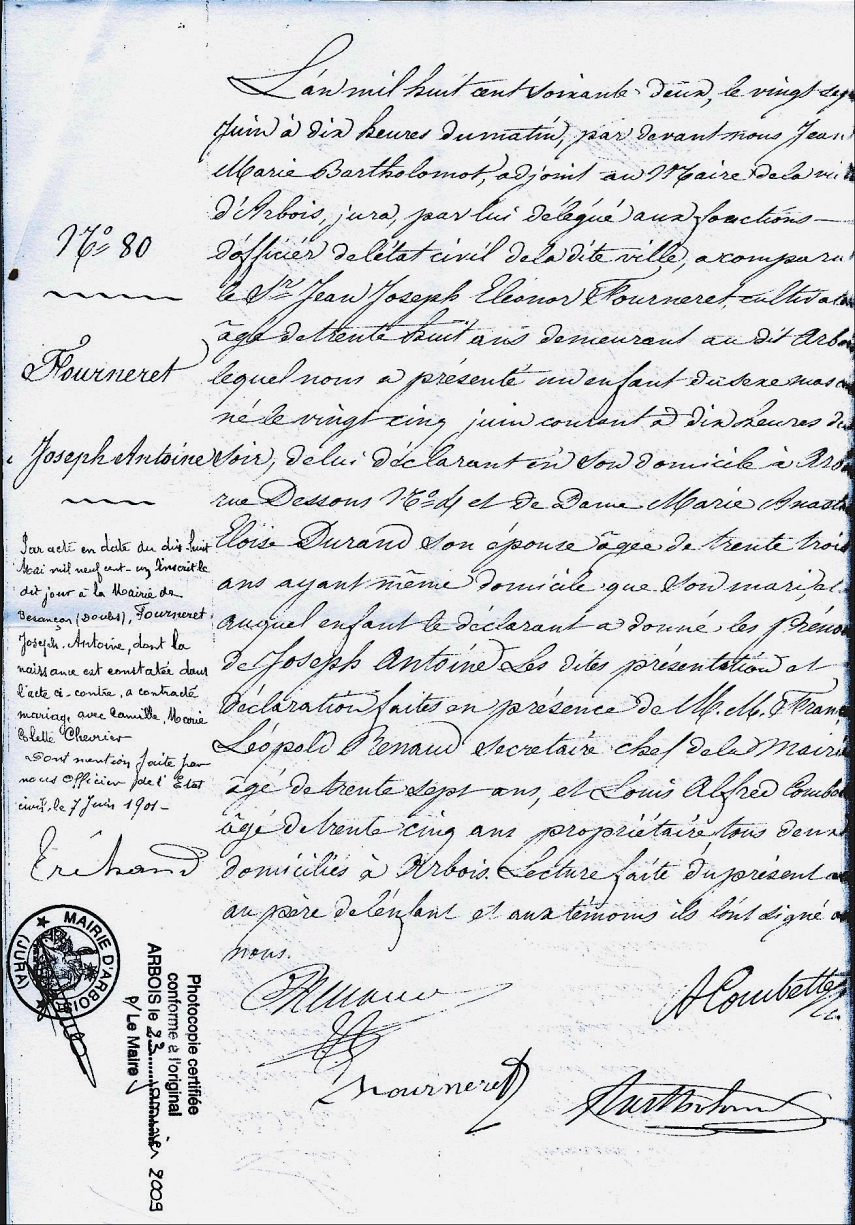 N° 80
Fourneret
Joseph Antoine
Par acte en date du dix-huit
Mai mil neuf cent-un inscrit le
dit jour à la Mairie de
Besançon (Doubs), Fourneret
Joseph-Antoine, dont la
naissance est constatée dans
l'acte ci-contre, a contracté
mariage avec Camille, Marie
Colette Chevrier
Dont mention faite par
nous Officier de l'Etat
civil, le 7 Juin 1901-
L'án mil huit cent soixante-deux, le vingt sep
Juin à dix heures du matin, par devant nous Jean
Marie Bartholomot, adjoint au Maire de la vi
d'Arbois, jura, par lui délégué aux fonctions
d'officier de l'état civil de la dite ville, a comparu
le Sr Jean Joseph Eléonor Fourneret, cultivat
âgé de trente huit ans demeurant au dit Arbo
lequel nous a présenté un enfant du sexe masc
né le vingt cinq juin courant à dix heures du
soir, de lui déclarant en son domicile à Arbo
rue Dessous N° 4 et de Dame Marie Anast
Eloise Durand son épouse âgée de trente trois
ans ayant même domicile que son mari, et
auquel enfant le déclarant a donné les prénom
de Joseph Antoine Les dites présentation et
déclaration faites en présence de M. M. Franç
Léopold Renaud secrétaire chef de la Mairie
âgé de trente sept ans, et Louis Alfred Combe
âgé de trente cinq ans propriétaire, tous deux
domiciliés à Arbois. Lecture faite du présent a
au père de l'enfant et aux témoins ils l'ont signé a
nous.
Renaud
A Combette
Fourneret
Bartholomot
MAIRIE D'ARBOIS
(JURA)
Photocopie certifiée
conforme à l'original
ARBOIS le 23 janvier 2009
p/ Le Maire